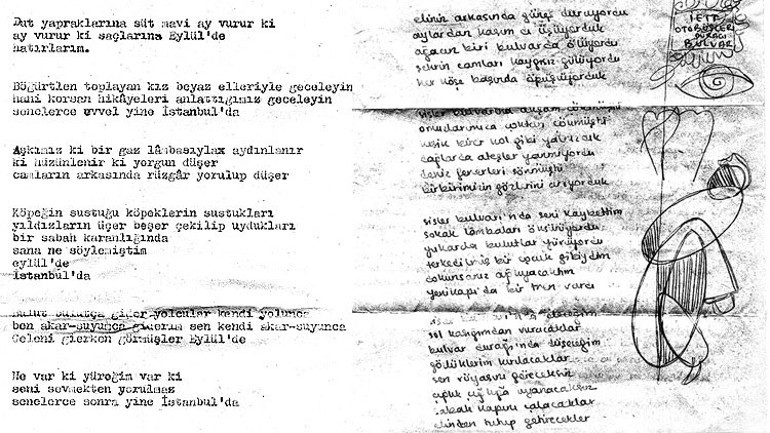 Dut yapraklarına süt mavi ay vurur ki
ay vurur ki saçlarına Eylül'de
hatırlarım.
Böğürtlen toplayan kız beyaz elleriyle geceleyin
hani korsan hikâyeleri anlattığımız geceleyin
senelerce evvel yine İstanbul'da
Aşkımız ki bir gaz lâmbasıylax aydınlanır
ki hüzünlenir ki yorgun düşer
camların arkasında rüzgâr yorulup düşer
Köpeğin sustuğu köpeklerin sustukları
yıldızların üçer beşer çekilip uydukları
bir sabah karanlığında
sana ne söylemiştim
eylül'de
İstanbul'da
bulutça gider yolcular kendi yolunca
ben akar-suyunca giderim sen kendi akar-suyunca
Geleni giderken görmüşler Eylül'de
Ne var ki yüreğim var ki
seni sevmekten yorulmaz
senelerce sonra yine İstanbul'da
elinin arkasında güneş duruyordu
aylardan kasım dı üşüyorduk
ağacın biri bulvarda ölüyordu
şehrin camları kaygısız gülüyordu
her köşe başında öpüşüyorduk
sisler bulvarına akşam çökmüştü
omuzlarımıza çoktan çökmüştü
kesik birer kol gibi yalnızdık
dağlarda ateşler yanmıyordu
deniz fenerleri sönmüştü
birbirimizin gözlerini arıyorduk
sisler bulvarı'nda seni kaybettim
sokak lâmbaları öksürüyordu
yukarda bulutlar yürüyordu
terkedilmiş bir çocuk gibiydim
dokunsanız ağlayacaktım
yenikapı'da bir tren vardı
sisler öleceğim
sol kasığımdan vuracaklar
bulvar durağı'nda düşeceğim
gözlüklerim kırılacaklar
sen rüyasını göreceksin
çığlık çığlığa uyanacaksın
sabah kapını çalacaklar
elinden tutup getirecekler
İETT
OTOBÜSLERİ
DURAĞI
BULVAR